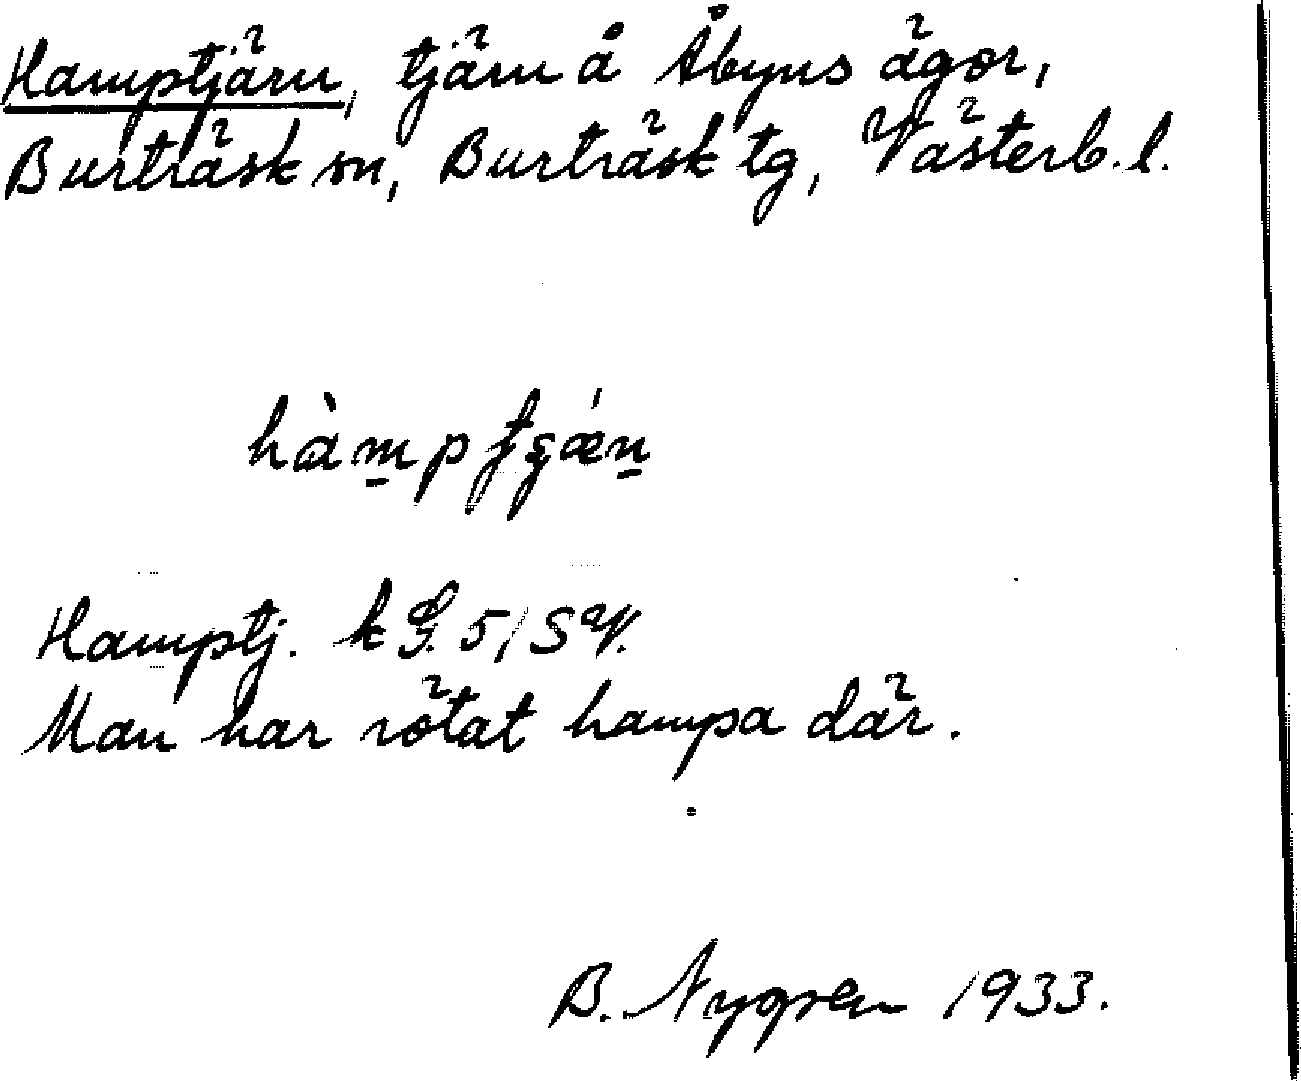 Hamptjärn, tjärn å Åbyns ägor,
Burträsk sn, Burträsk tg, Västerb. l.
Hamptj. k G. 5/SV.
Man har rötat hampa där.
B. Nygren 1933.